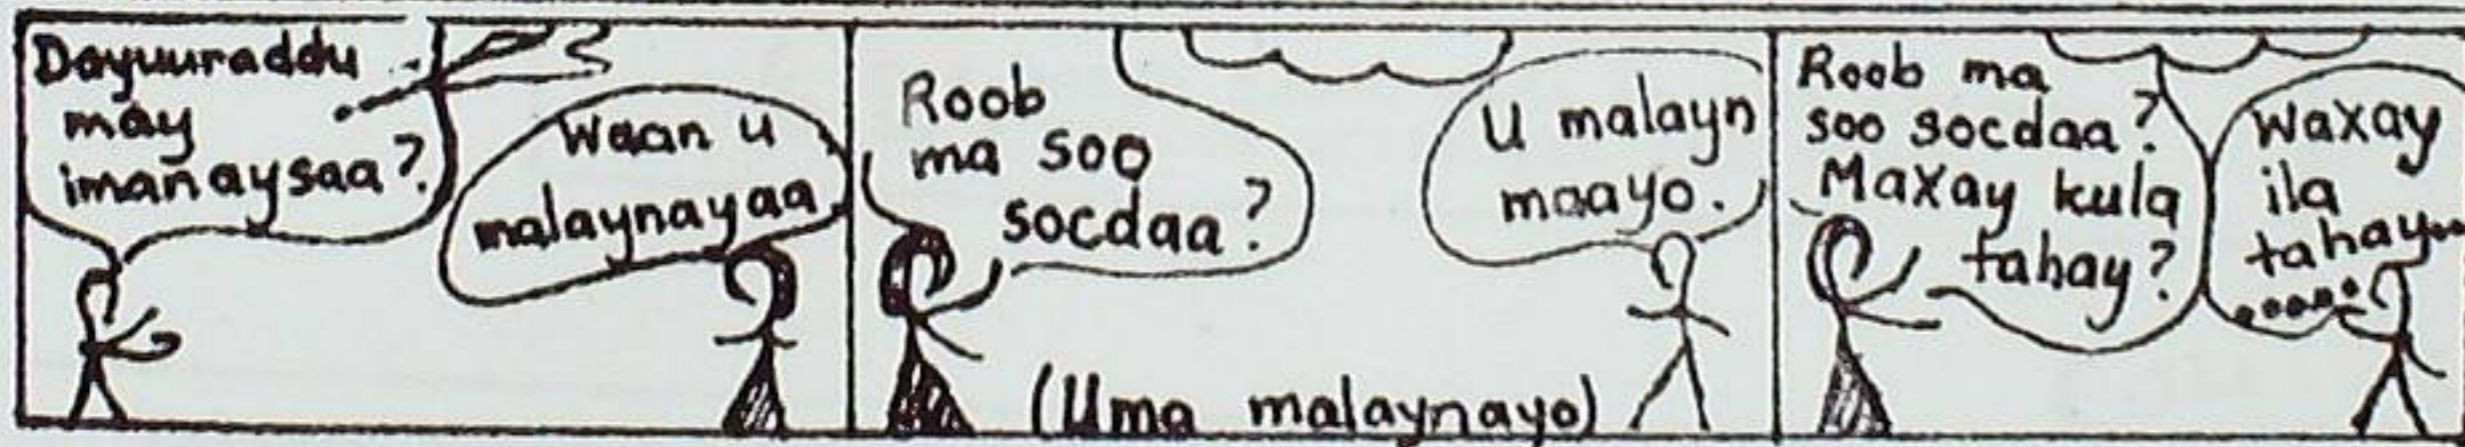 Dayuuraddu
may
imanaysaa?
Waan u
malaynayaa
Roob
ma soo
socdaa?
U malayn
maayo.
(Uma malaynayo)
Roob ma
soo socdaa?
Maxay kula
tahay?
Waxay
ila
tahay...
.....